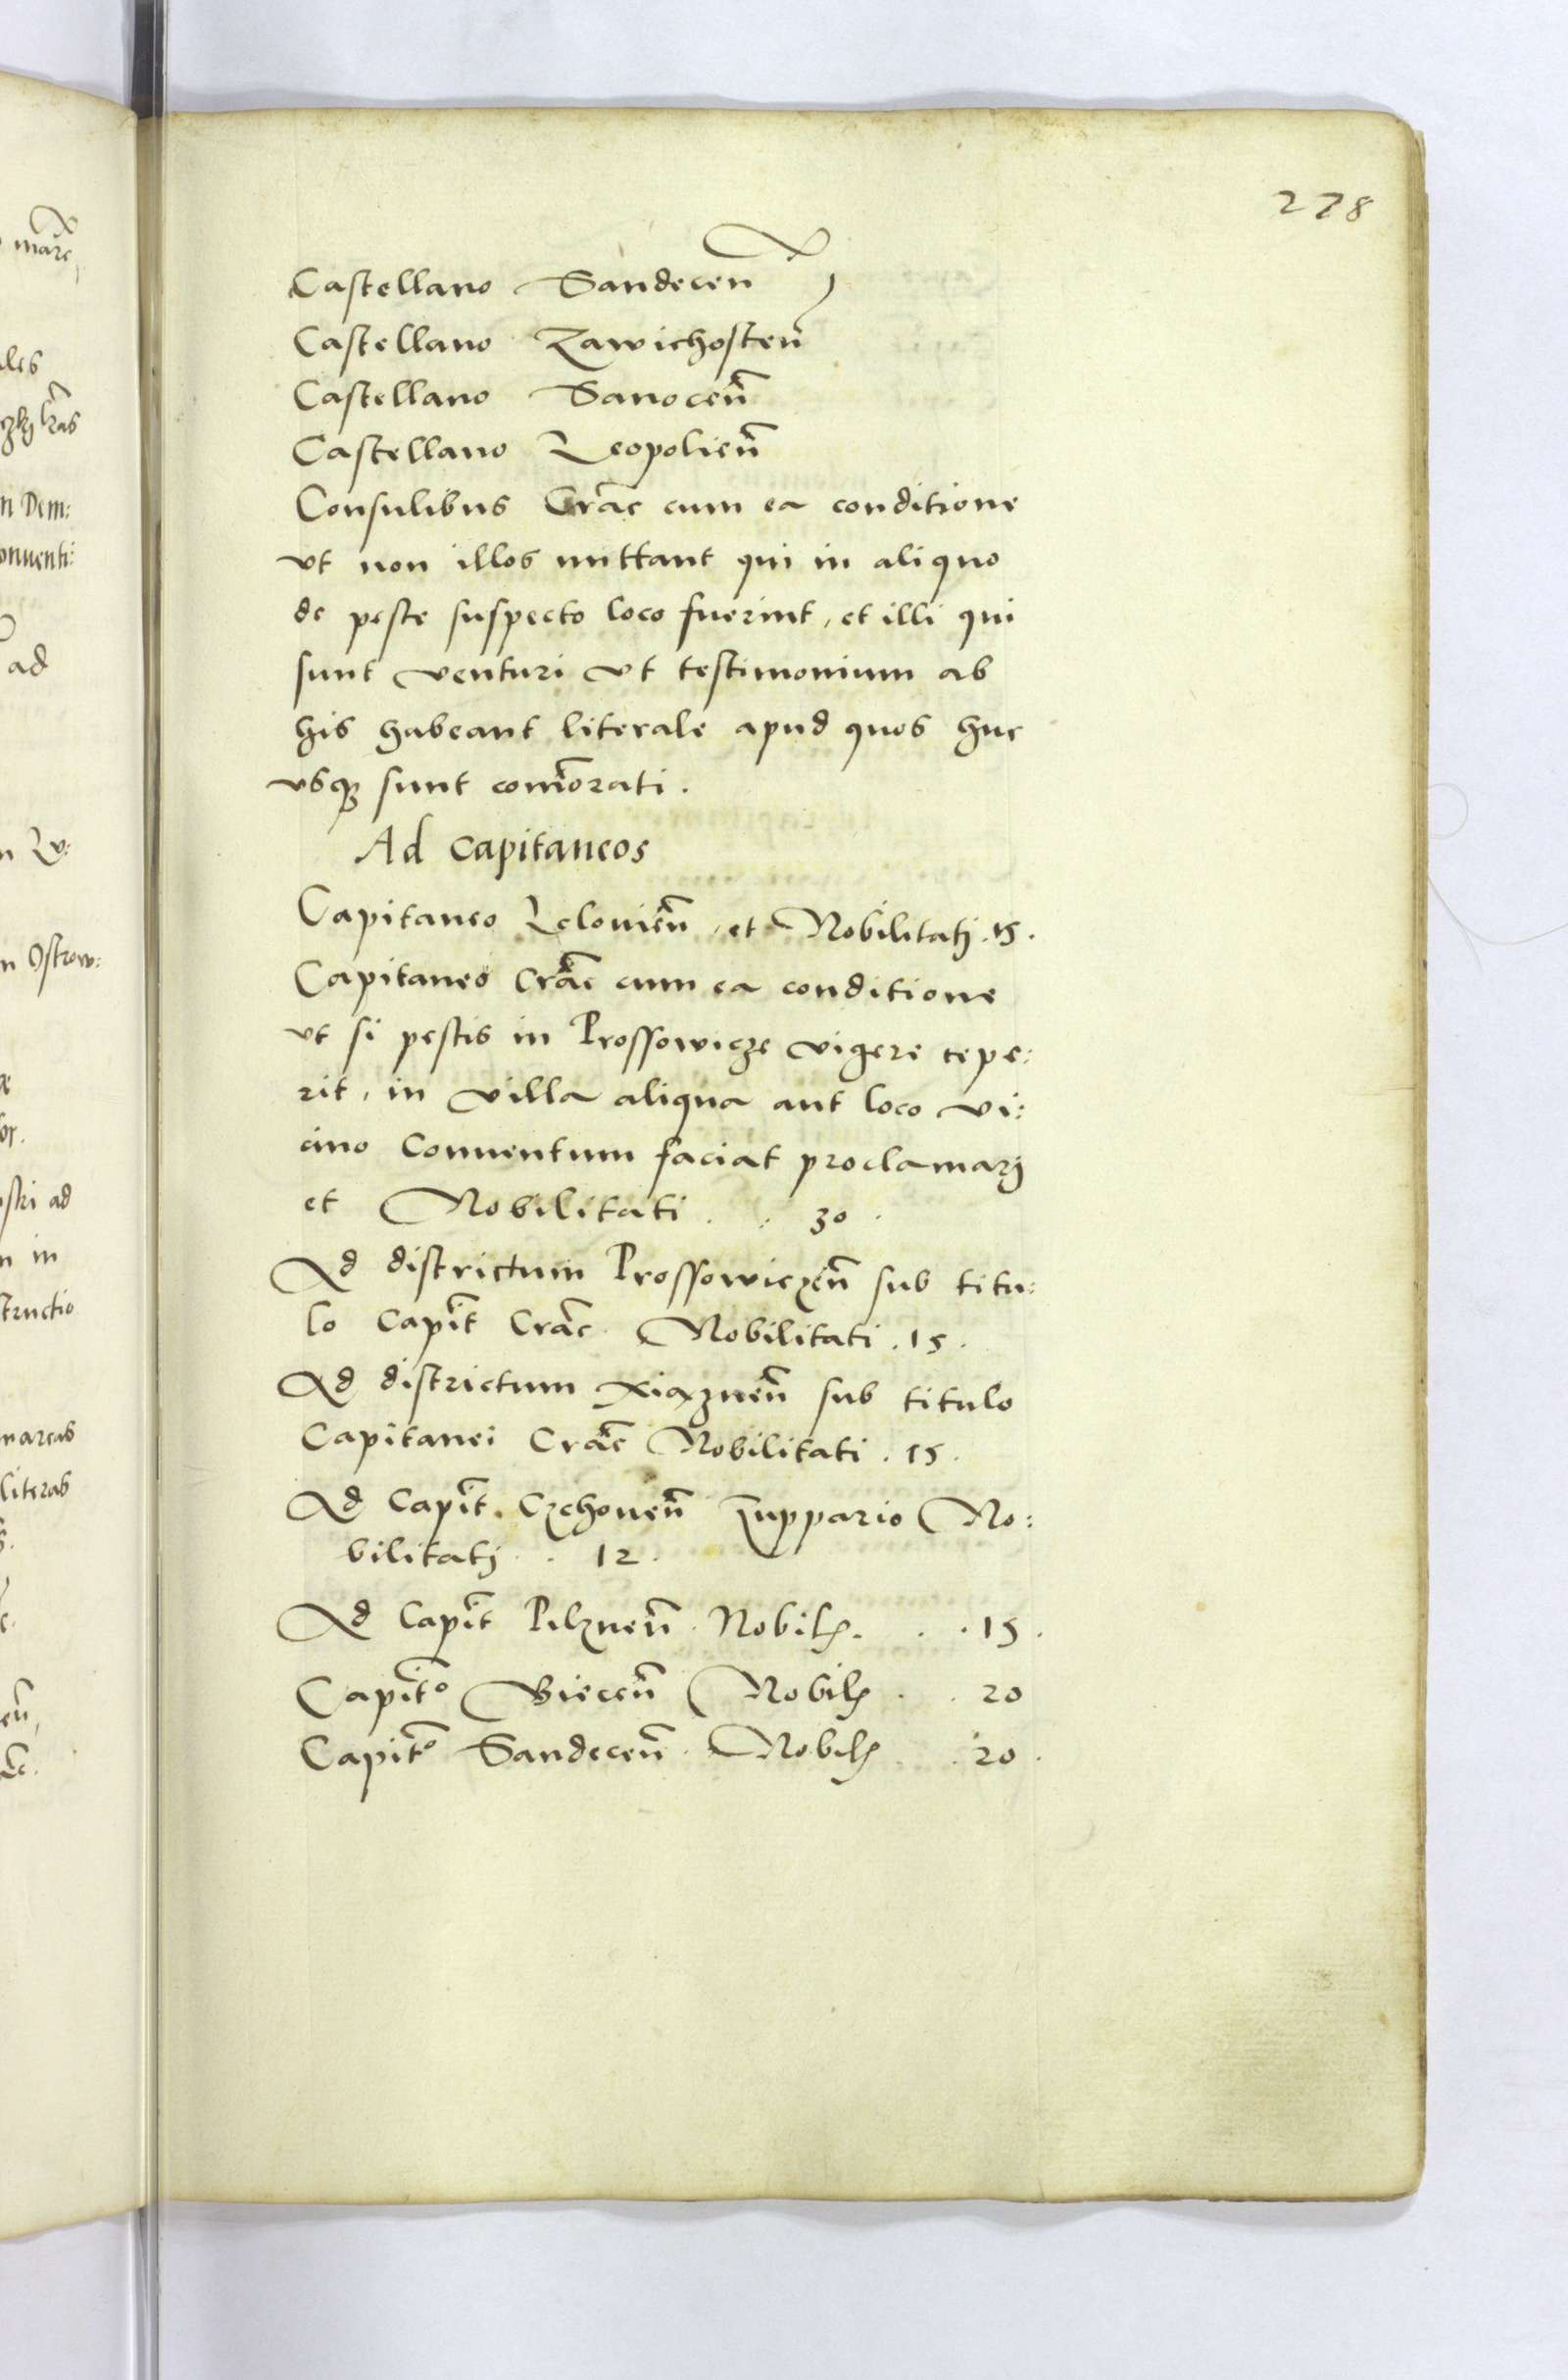 278
Castellano Sandecen̄
Castellano Zawichosten̄
Castellano Sanocen̄
Castellano Leopolien̄
Consulibus Crac̄ cum ea conditione
vt non illos mittant qui in aliquo
de peste suspecto loco fuerint, et illi qui
sunt venturi vt testimonium ab
his habeant literale apud quos huc
vsq3 sunt com̄orati.
Ad Capitaneos
Capitaneo Lelovien̄, et Nobilitatj .15.
Capitaneo Crac̄ cum ea conditione
vt si pestis in Prossowicze vigere cepe:
rit, in villa aliqua aut loco vi:
cino Conventum faciat proclamarj
et Nobilitati . . 30 .
Ad districtum Prossowiczen̄ sub titu:
lo Capit̄ Crac̄ Nobilitati . 15 .
Ad districtum Xiąznen̄ sub titulo
Capitanei Crac̄ Nobilitati . 15 .
Ad Capit̄. Czchouen̄ Zuppario No:
bilitatj . . 12 .
Ad Capit̄ Pilznen̄ . Nobil. . . 15 .
Capit̄o Biecen̄ Nobil . . 20
Capit̄o Sandecen̄ . Nobil . 20 .
marc
ales
n Dem:
onuenti:
ad
n Ostrow:
ostri ad
n in
structio
marcas
literas